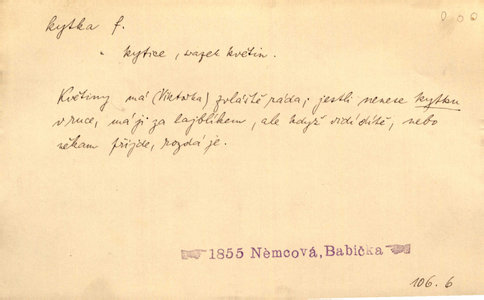 kytka f.
kytice, svazek květin.
Květiny má (Viktorka) zvláště ráda; jestli nenese kytku
v ruce, má ji za lajblíkem, ale když vidí dítě, nebo
někam přijde, rozdá je.
1855 Němcová, Babička
106. 6